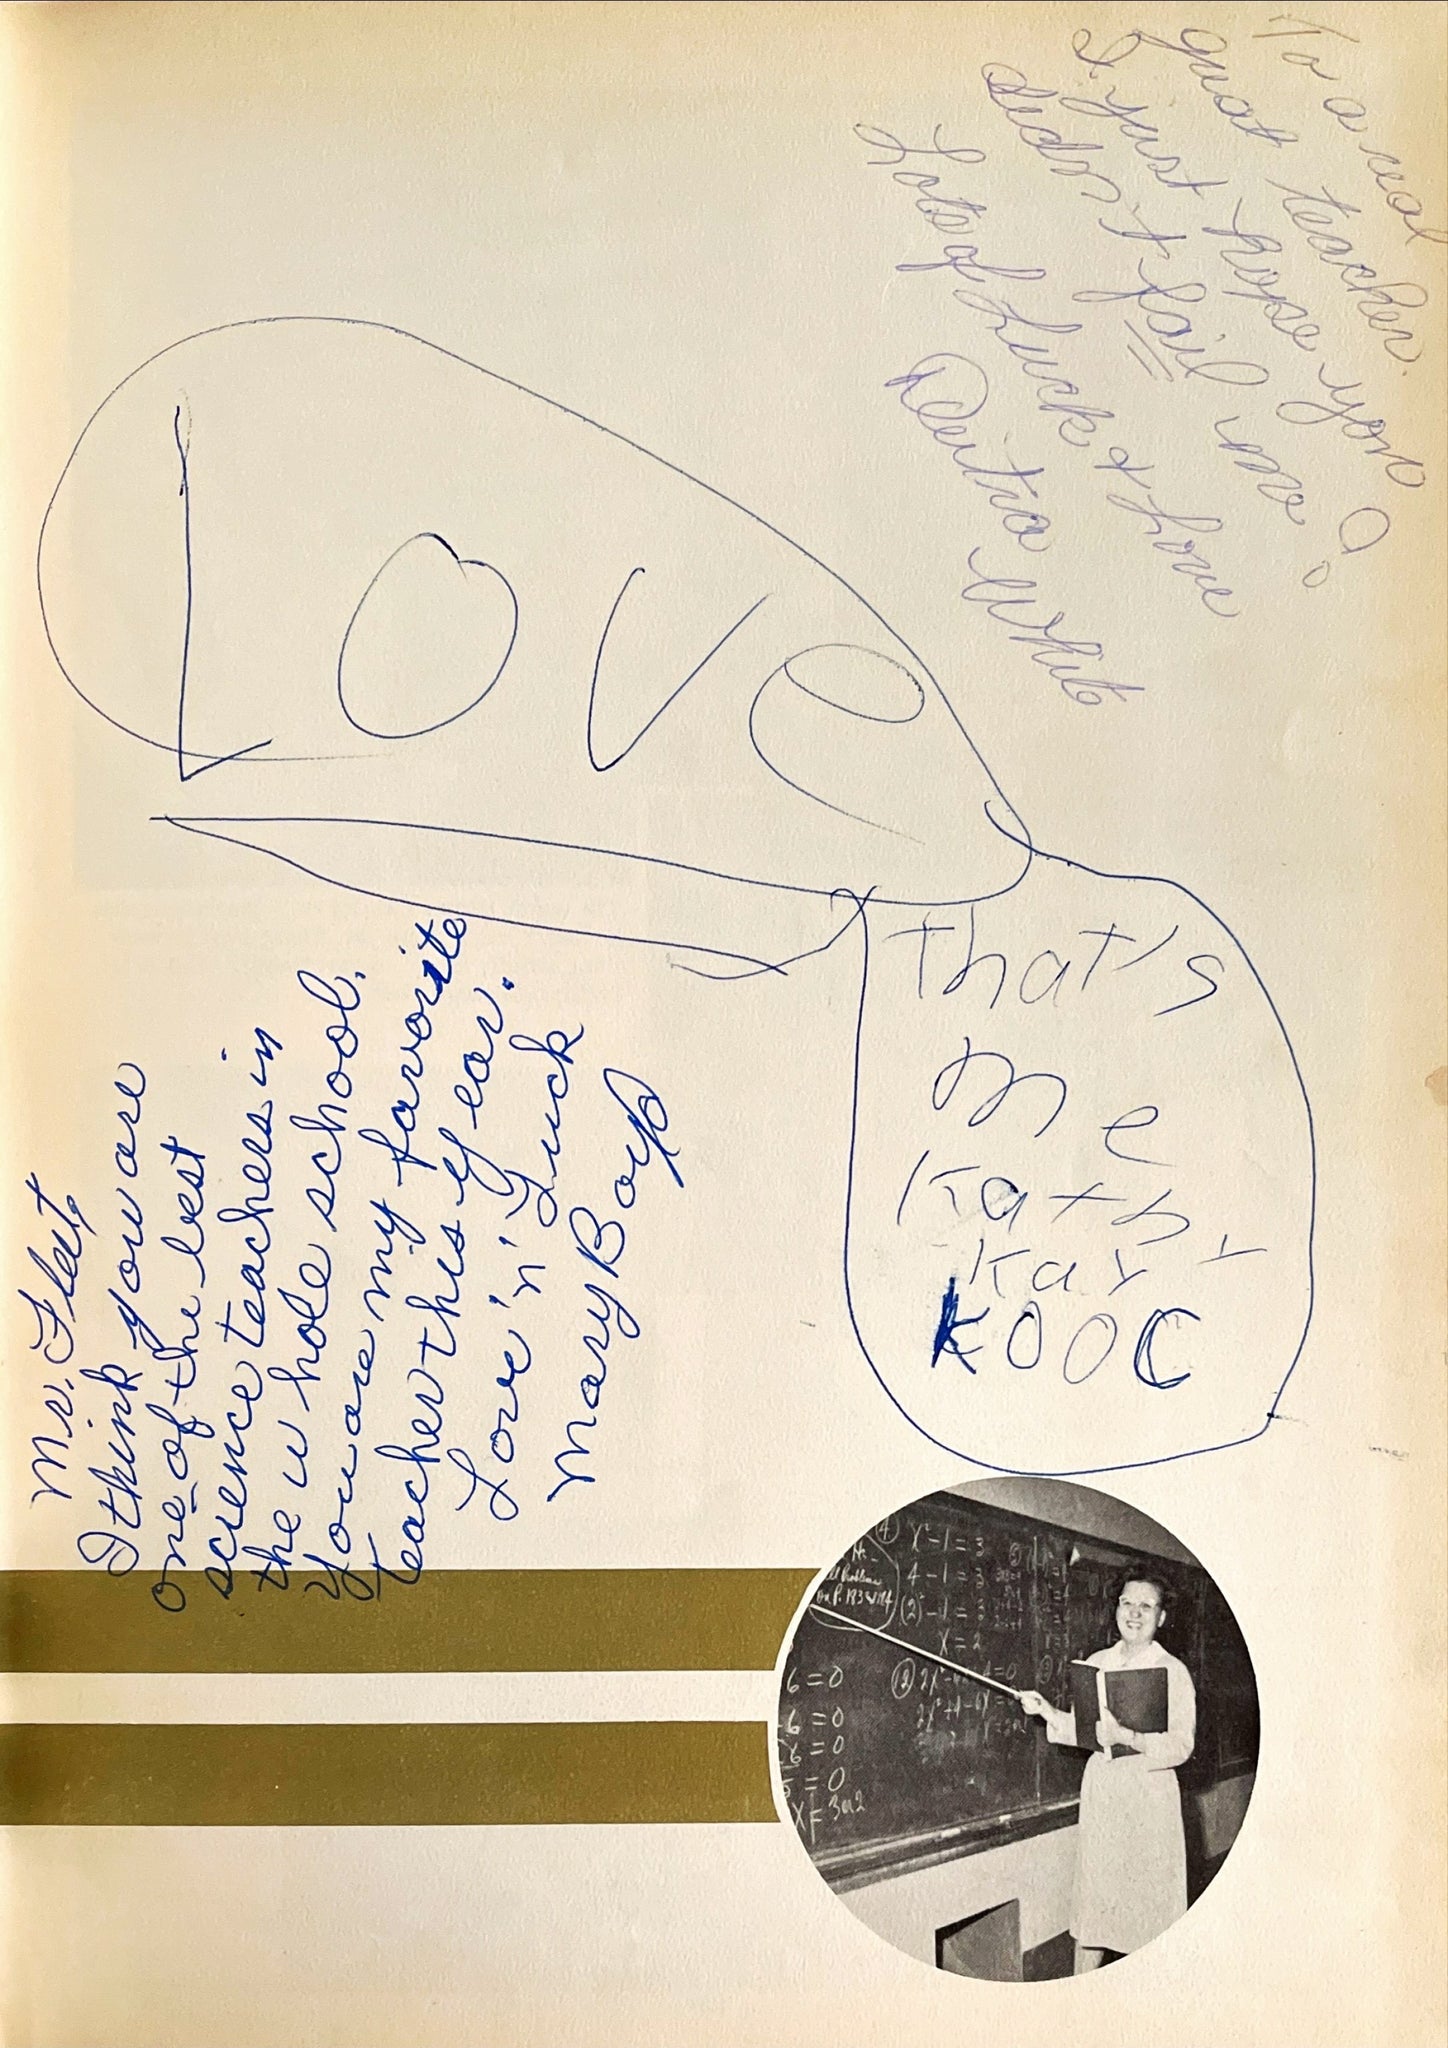 To a real
great teacher.
I just hope you
didn't fail me!
Lots of Luck & Love
White
Love
That's
me
Kathy
Kay
KOOC
Mr. Fleet,
I think you are
one of the best
science teachers in
the whole school.
You are my favorite
teacher this year.
Love 'n' Luck
Mary Boyp
(4)
X² - 1 = 3
4 - 1 = 3
(2)² - 1 = 3
X = 2
(12)
6 = 0
-6 = 0
= 0
= 0
X = 3 or 2